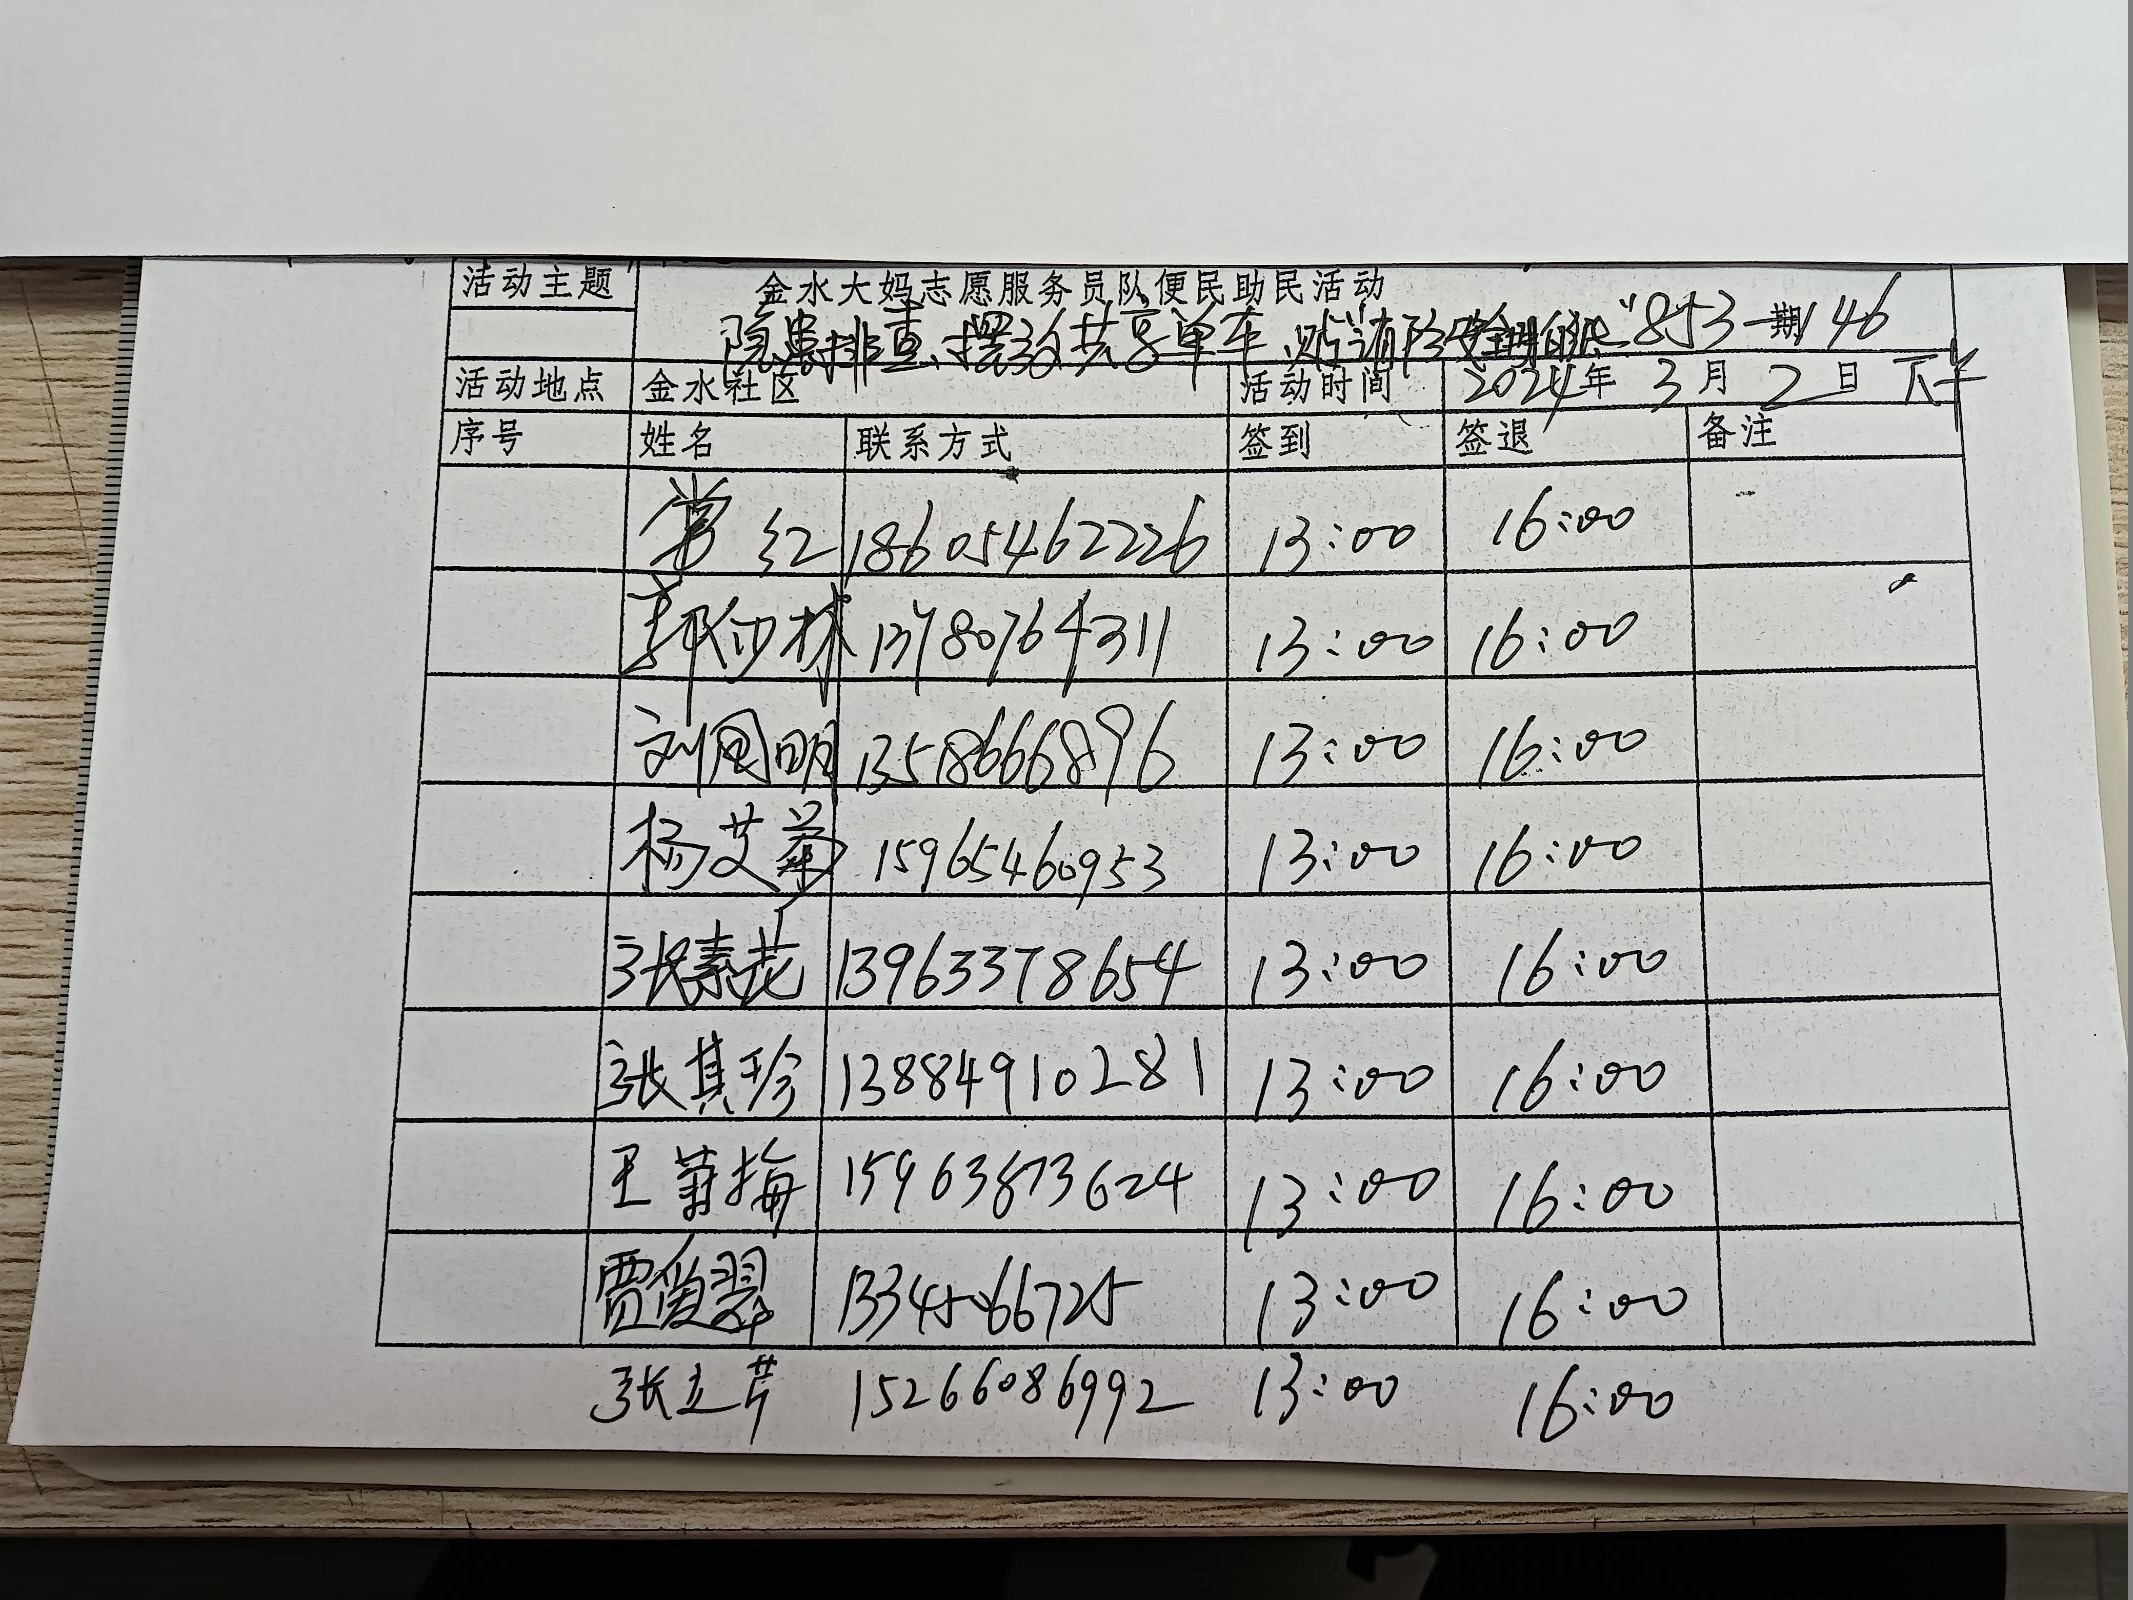 活动主题 金水大妈志愿服务员队便民助民活动
隐患排查、摆放共享单车、贴消防安全明白纸 "853一期146
活动地点 金水社区 活动时间 2024年 3月 2日 下午
序号 姓名 联系方式 签到 签退 备注
常红 18605462226 13:00 16:00
林 13780764311 13:00 16:00
刘国明 13518666896 13:00 16:00
杨艾菊 15965460953 13:00 16:00
张素花 13963378654 13:00 16:00
张其珍 13884910281 13:00 16:00
王菊梅 15963873624 13:00 16:00
贾俊翠 13:00 16:00
张立芹 15266086992 13:00 16:00